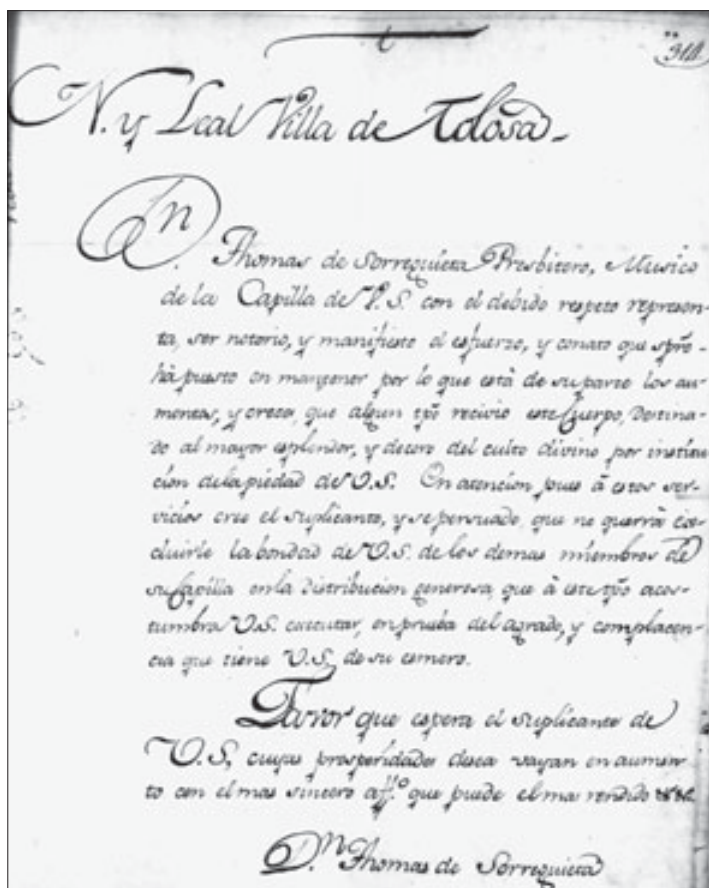 314.
N. y Leal Villa de Tolosa.
Dn. Thomas de Sorrequieta Presbitero, Musico
de la Capilla de V.S. con el debido respeto represen-
ta, ser notorio, y manifiesto el esfuerzo, y conato que spre.
há puesto en mantener por lo que está de su parte los au-
mentos, y creces, que algun tpo recivio este Cuerpo, Destina-
do al mayor esplendor, y decoro del culto divino por institu-
ción de la piedad de V.S. En atencion pues á estos ser-
vicios cree el suplicante, y se persuade, que no querrá ex-
cluirle la bondad de V.S. de los demas miembros de
su Capilla en la Distribucion generosa, que á este tpo acos-
tumbra V.S. executar, en prueba del agrado, y complacen-
cia que tiene V.S. de su esmero.
Favor que espera el suplicante de
V.S., cuyas prosperidades desea vayan en aumen-
to con el mas sincero aff.o que puede el mas rendido
Dn. Thomas de Sorrequieta